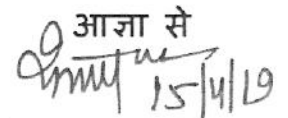 आज्ञा से
15/4/19